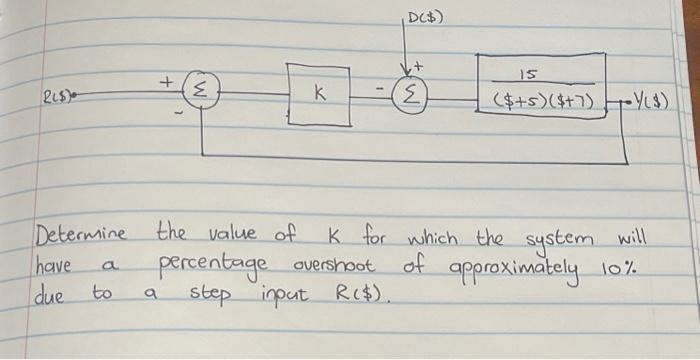 D($)
+
15
R($) + Σ K - Σ ($+5)($+7) Y($)
-
Determine the value of K for which the system will
have a percentage overshoot of approximately 10%
due to a step input R($).